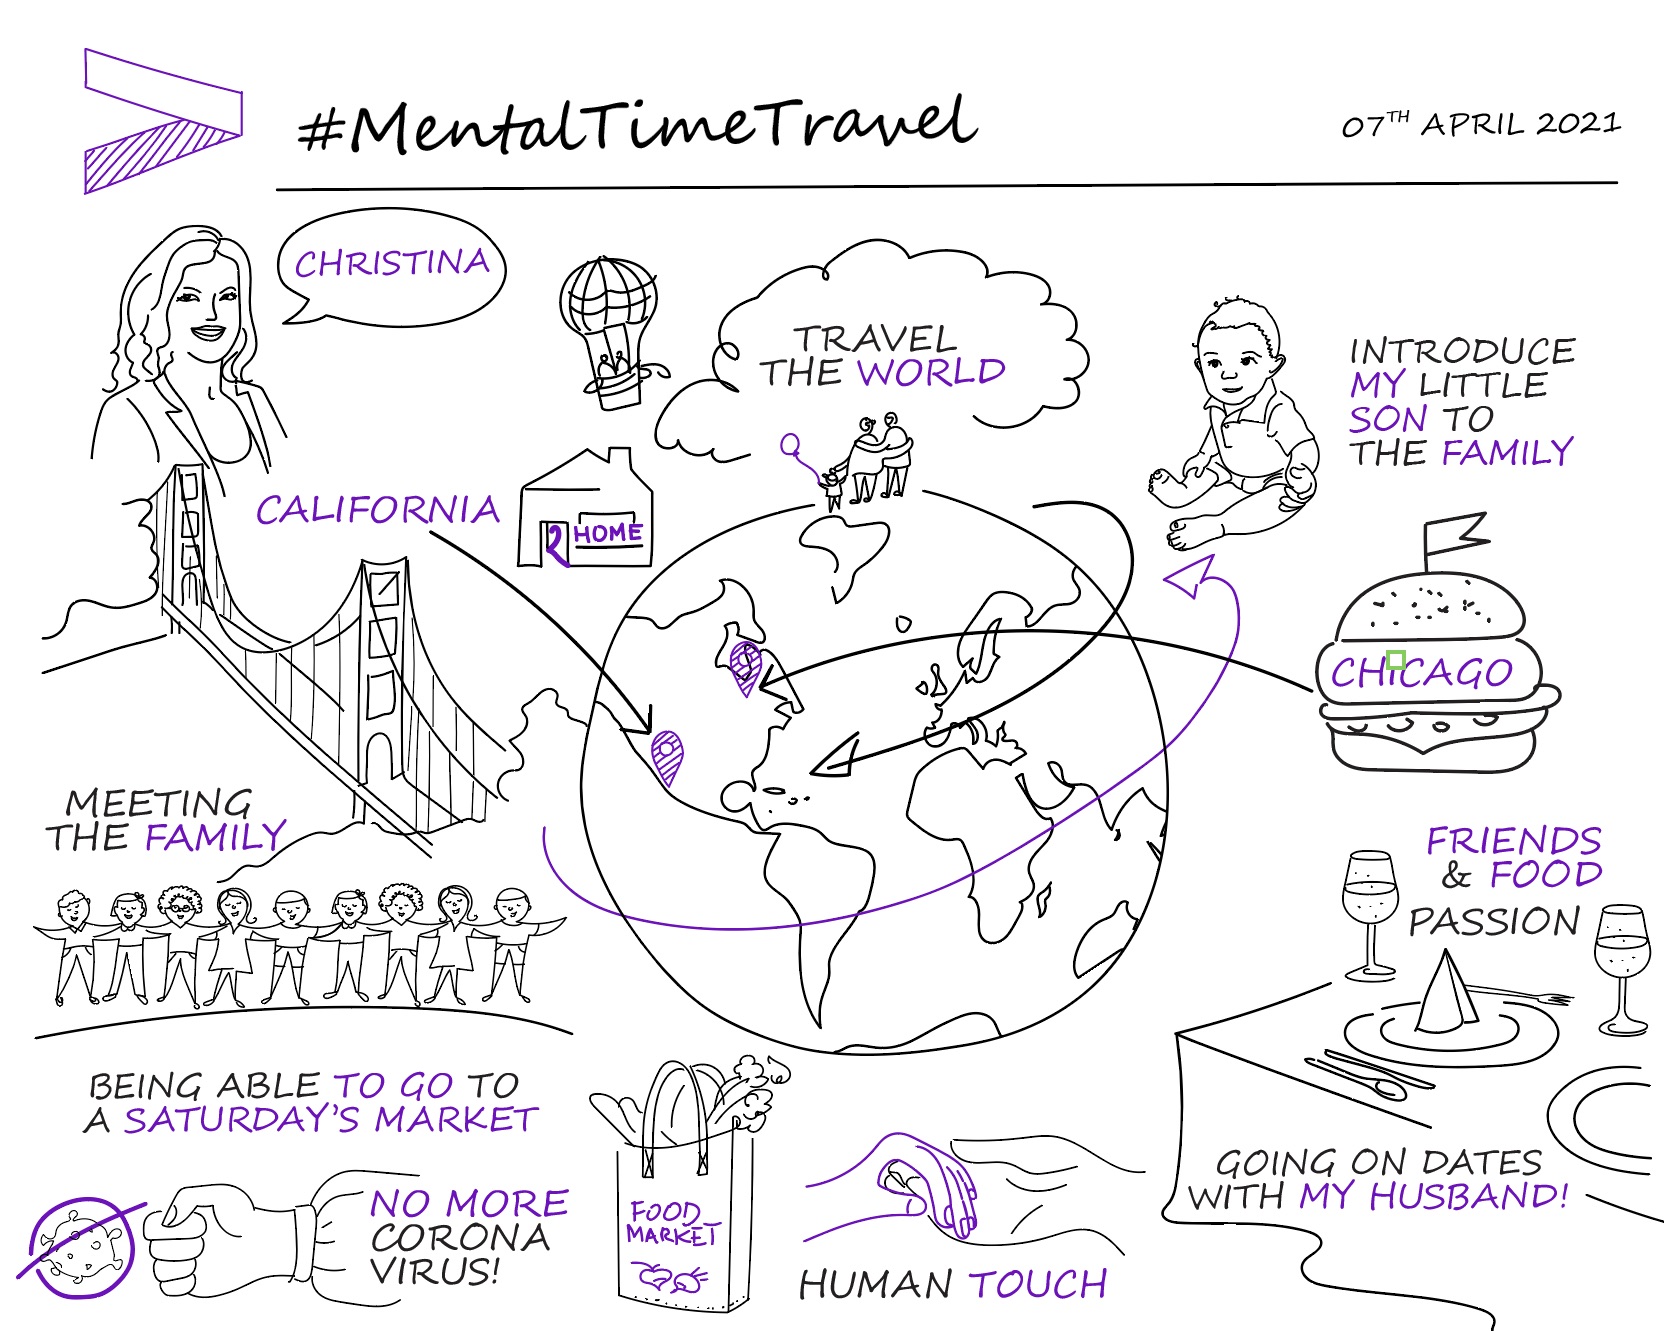 #MentalTimeTravel
07TH APRIL 2021
CHRISTINA
TRAVEL
THE WORLD
INTRODUCE
MY LITTLE
SON TO
THE FAMILY
CALIFORNIA
HOME
CHiCAGO
MEETING
THE FAMILY
FRIENDS
& FOOD
PASSION
BEING ABLE TO GO TO
A SATURDAY'S MARKET
GOING ON DATES
WITH MY HUSBAND!
NO MORE
CORONA
VIRUS!
FOOD
MARKET
HUMAN TOUCH